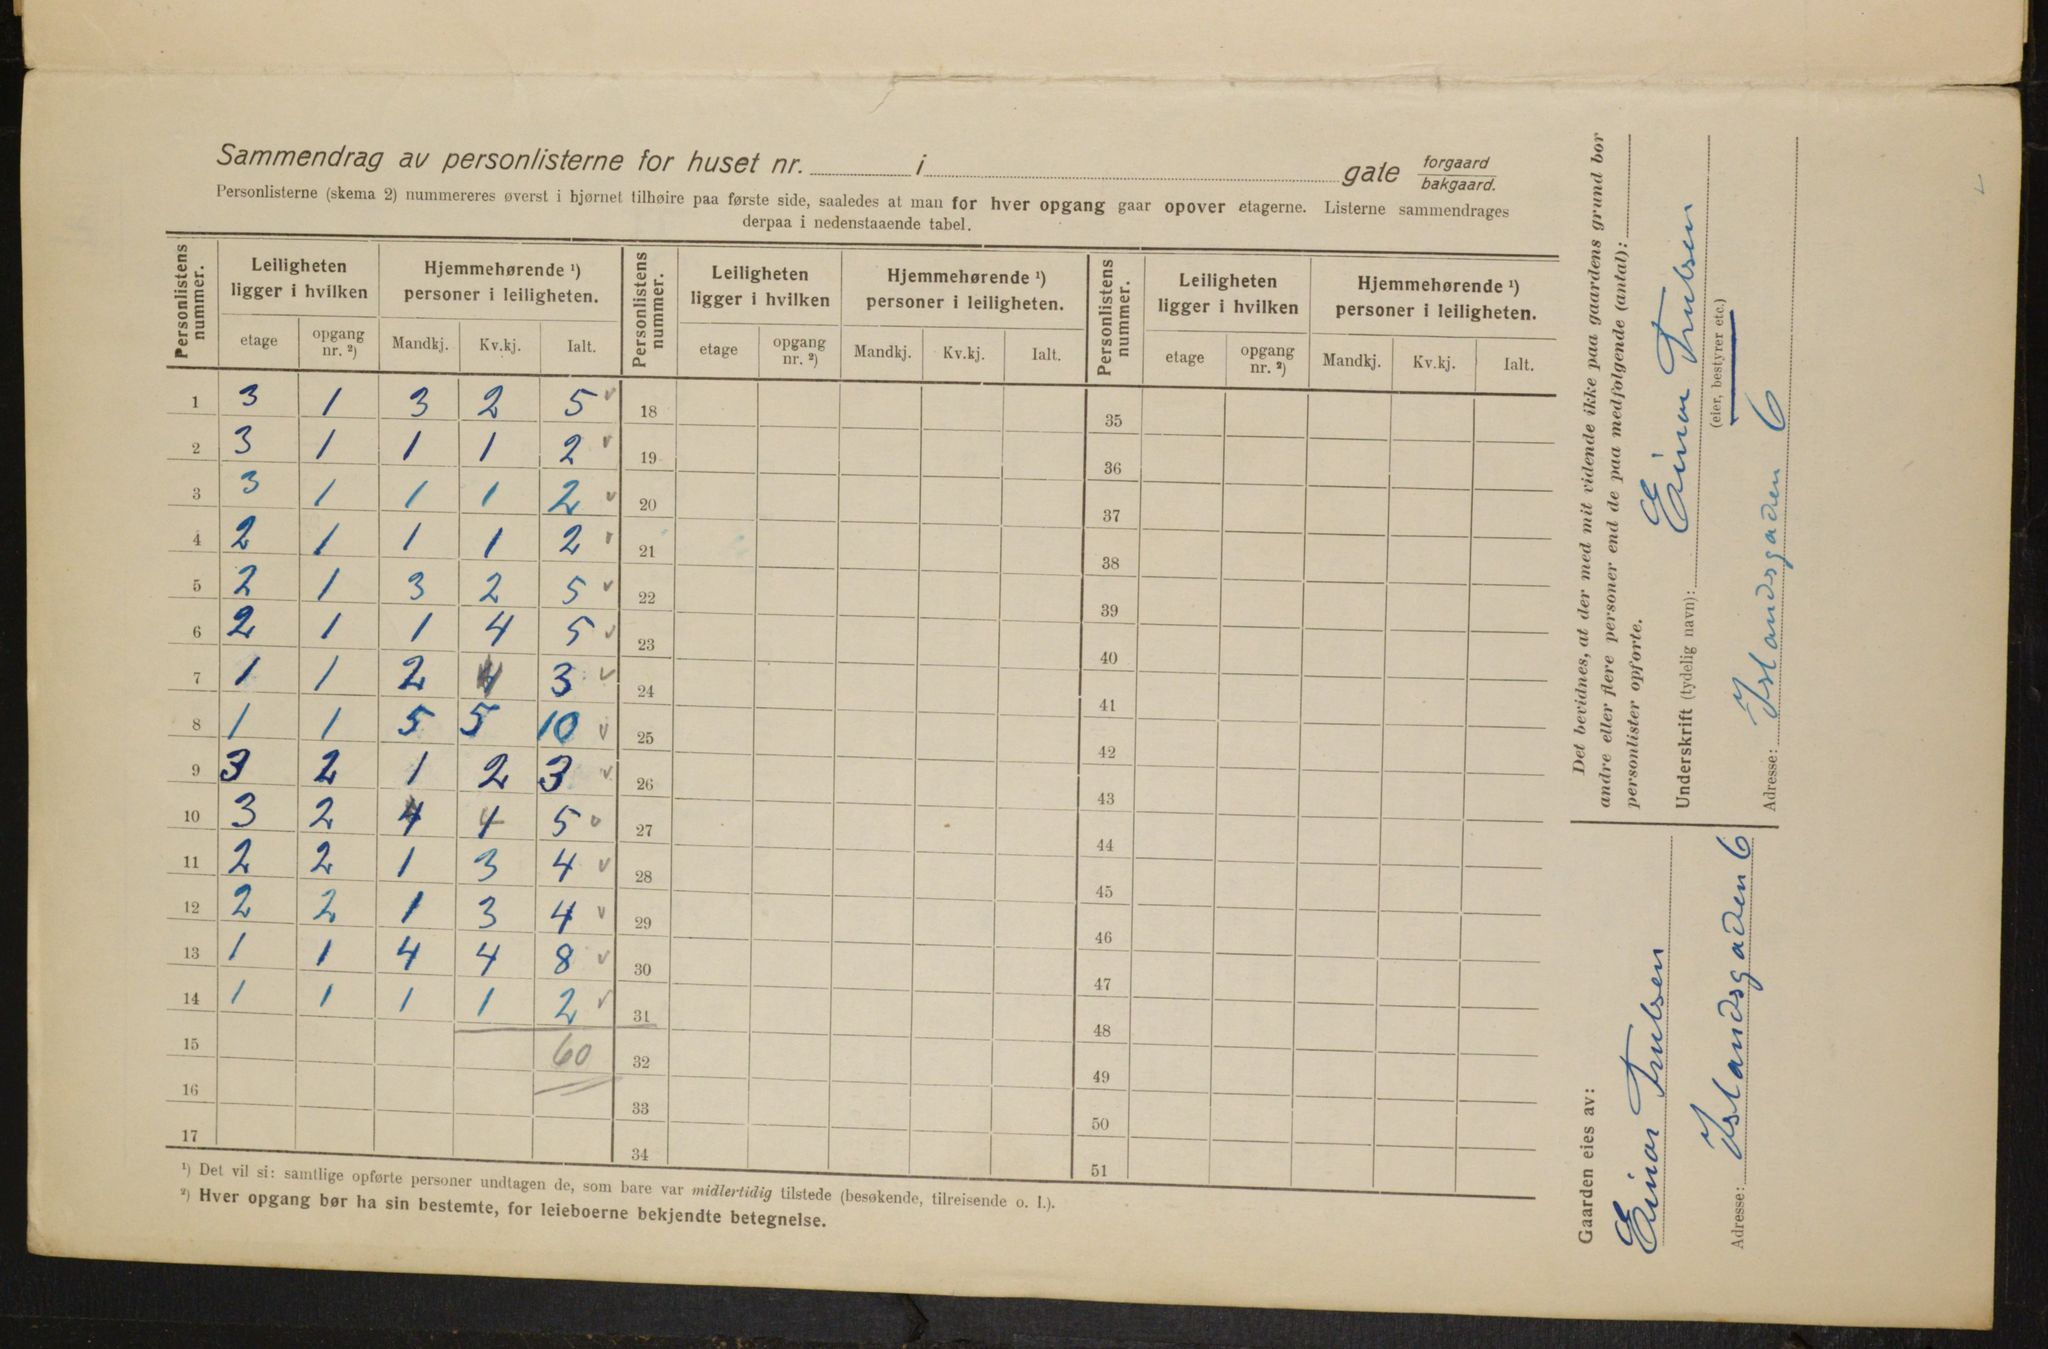 Sammendrag av personlisterne for huset nr. i gate forgaard bakgaard.
Personlisterne (skema 2) nummereres øverst i hjørnet tilhøire paa første side, saaledes at man for hver opgang gaar opover etagerne. Listerne sammendrages
derpaa i nedenstaaende tabel.
Personlistens nummer. Leiligheten ligger i hvilken Hjemmehørende ¹) personer i leiligheten. Personlistens nummer. Leiligheten ligger i hvilken Hjemmehørende ¹) personer i leiligheten. Personlistens nummer. Leiligheten ligger i hvilken Hjemmehørende ¹) personer i leiligheten.
etage opgang nr. ²) Mandkj. Kv.kj. Ialt. etage opgang nr. ²) Mandkj. Kv.kj. Ialt. etage opgang nr. ²) Mandkj. Kv.kj. Ialt.
1 3 1 3 2 5 18 35
2 3 1 1 1 2 19 36
3 3 1 1 1 2 20 37
4 2 1 1 1 2 21 38
5 2 1 3 2 5 22 39
6 2 1 1 4 5 23 40
7 1 1 2 3 24 41
8 1 1 5 5 10 25 42
9 3 2 1 2 3 26 43
10 3 2 4 1 5 27 44
11 2 2 1 3 4 28 45
12 2 2 1 3 4 29 46
13 1 1 4 4 8 30 47
14 1 1 1 1 2 31 48
15 60 32 49
16 33 50
17 34 51
¹) Det vil si: samtlige opførte personer undtagen de, som bare var midlertidig tilstede (besøkende, tilreisende o. l.).
²) Hver opgang bør ha sin bestemte, for leieboerne bekjendte betegnelse.
Det bevidnes, at der med mit vidende ikke paa gaardens grund bor
andre eller flere personer end de paa medfølgende (antal):
personlister opførte.
Underskrift (tydelig navn): Einar Trulsen
(eier, bestyrer etc.)
Adresse: Islandsgaden 6
Gaarden eies av:
Einar Trulsen
Adresse: Islandsgaden 6